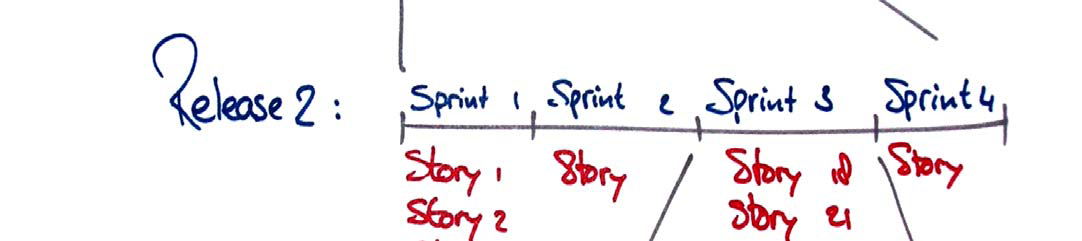 Release 2:
Sprint 1 Sprint 2 Sprint 3 Sprint 4
Story 1 Story Story 18 Story
Story 2 Story 21